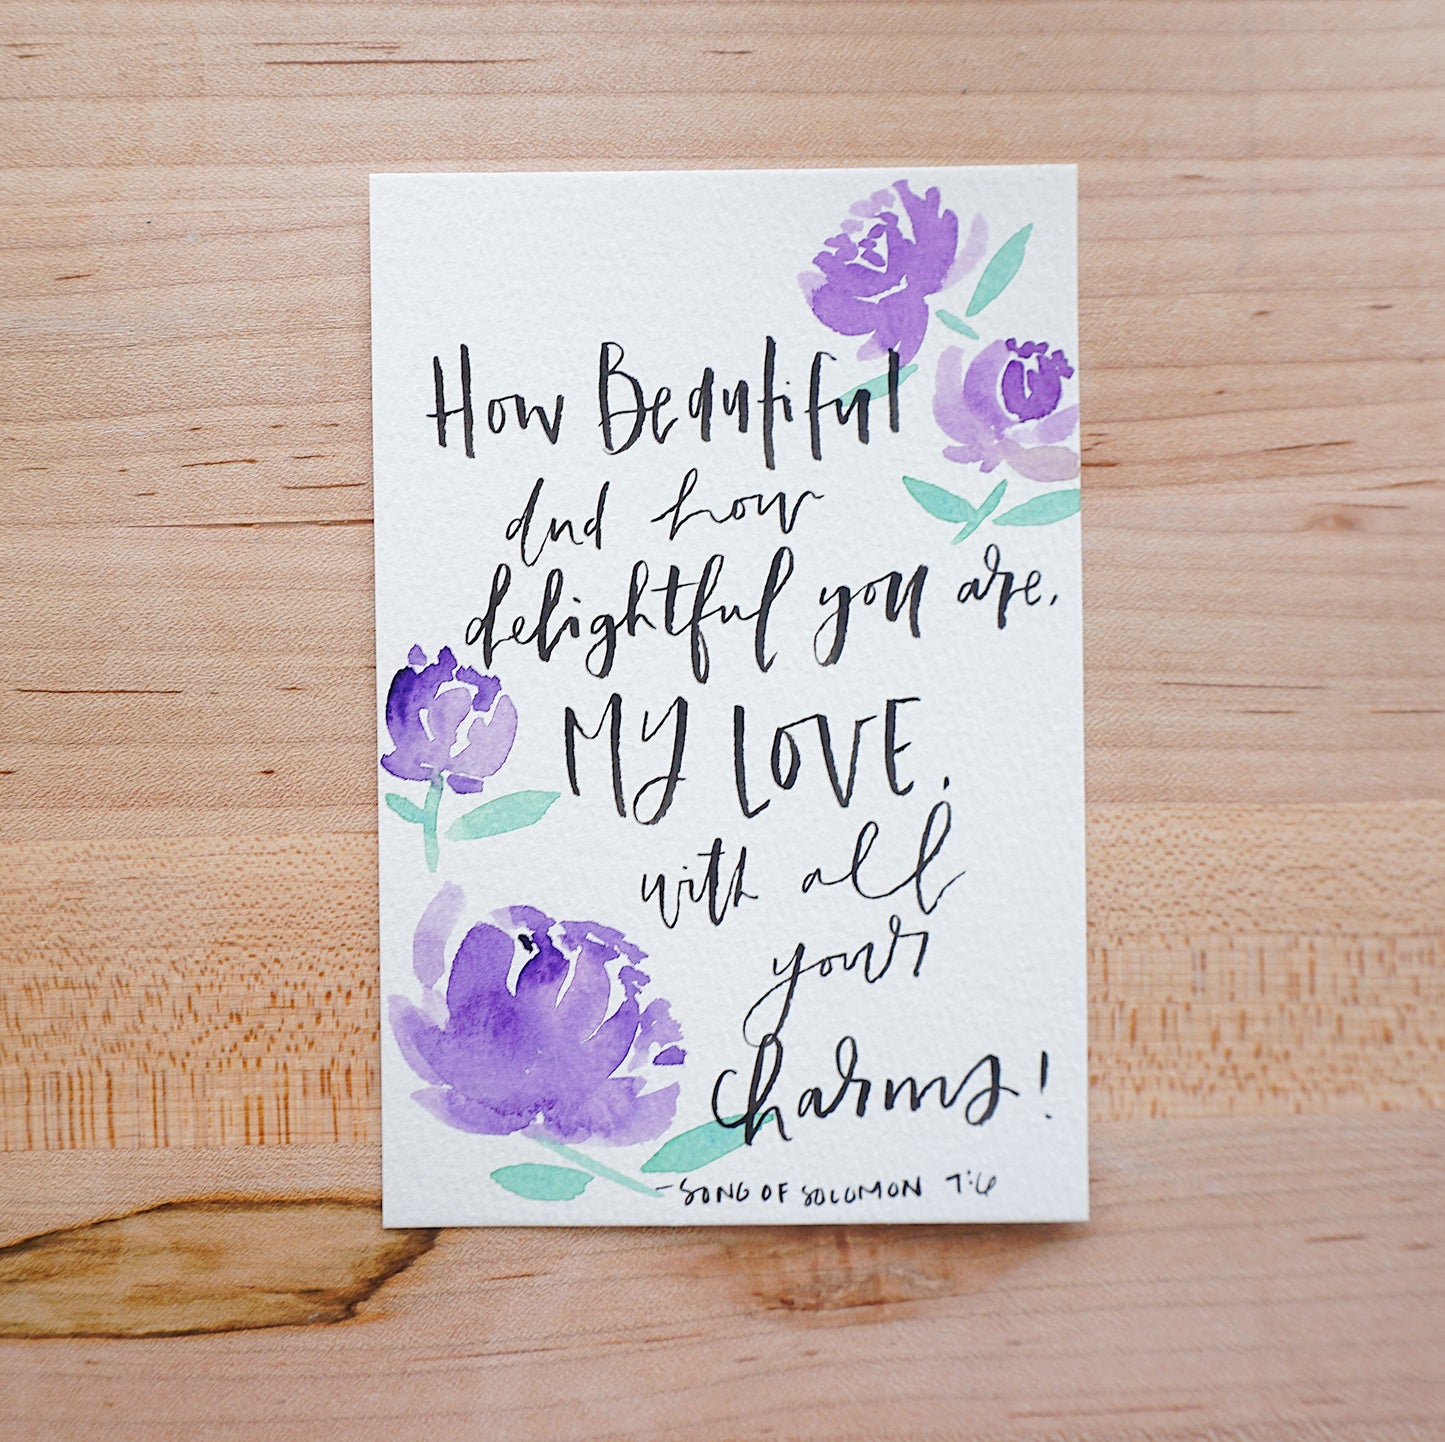 How Beautiful
and how
delightful you are,
MY LOVE,
with all
your
charms!
-SONG OF SOLOMON 7:6